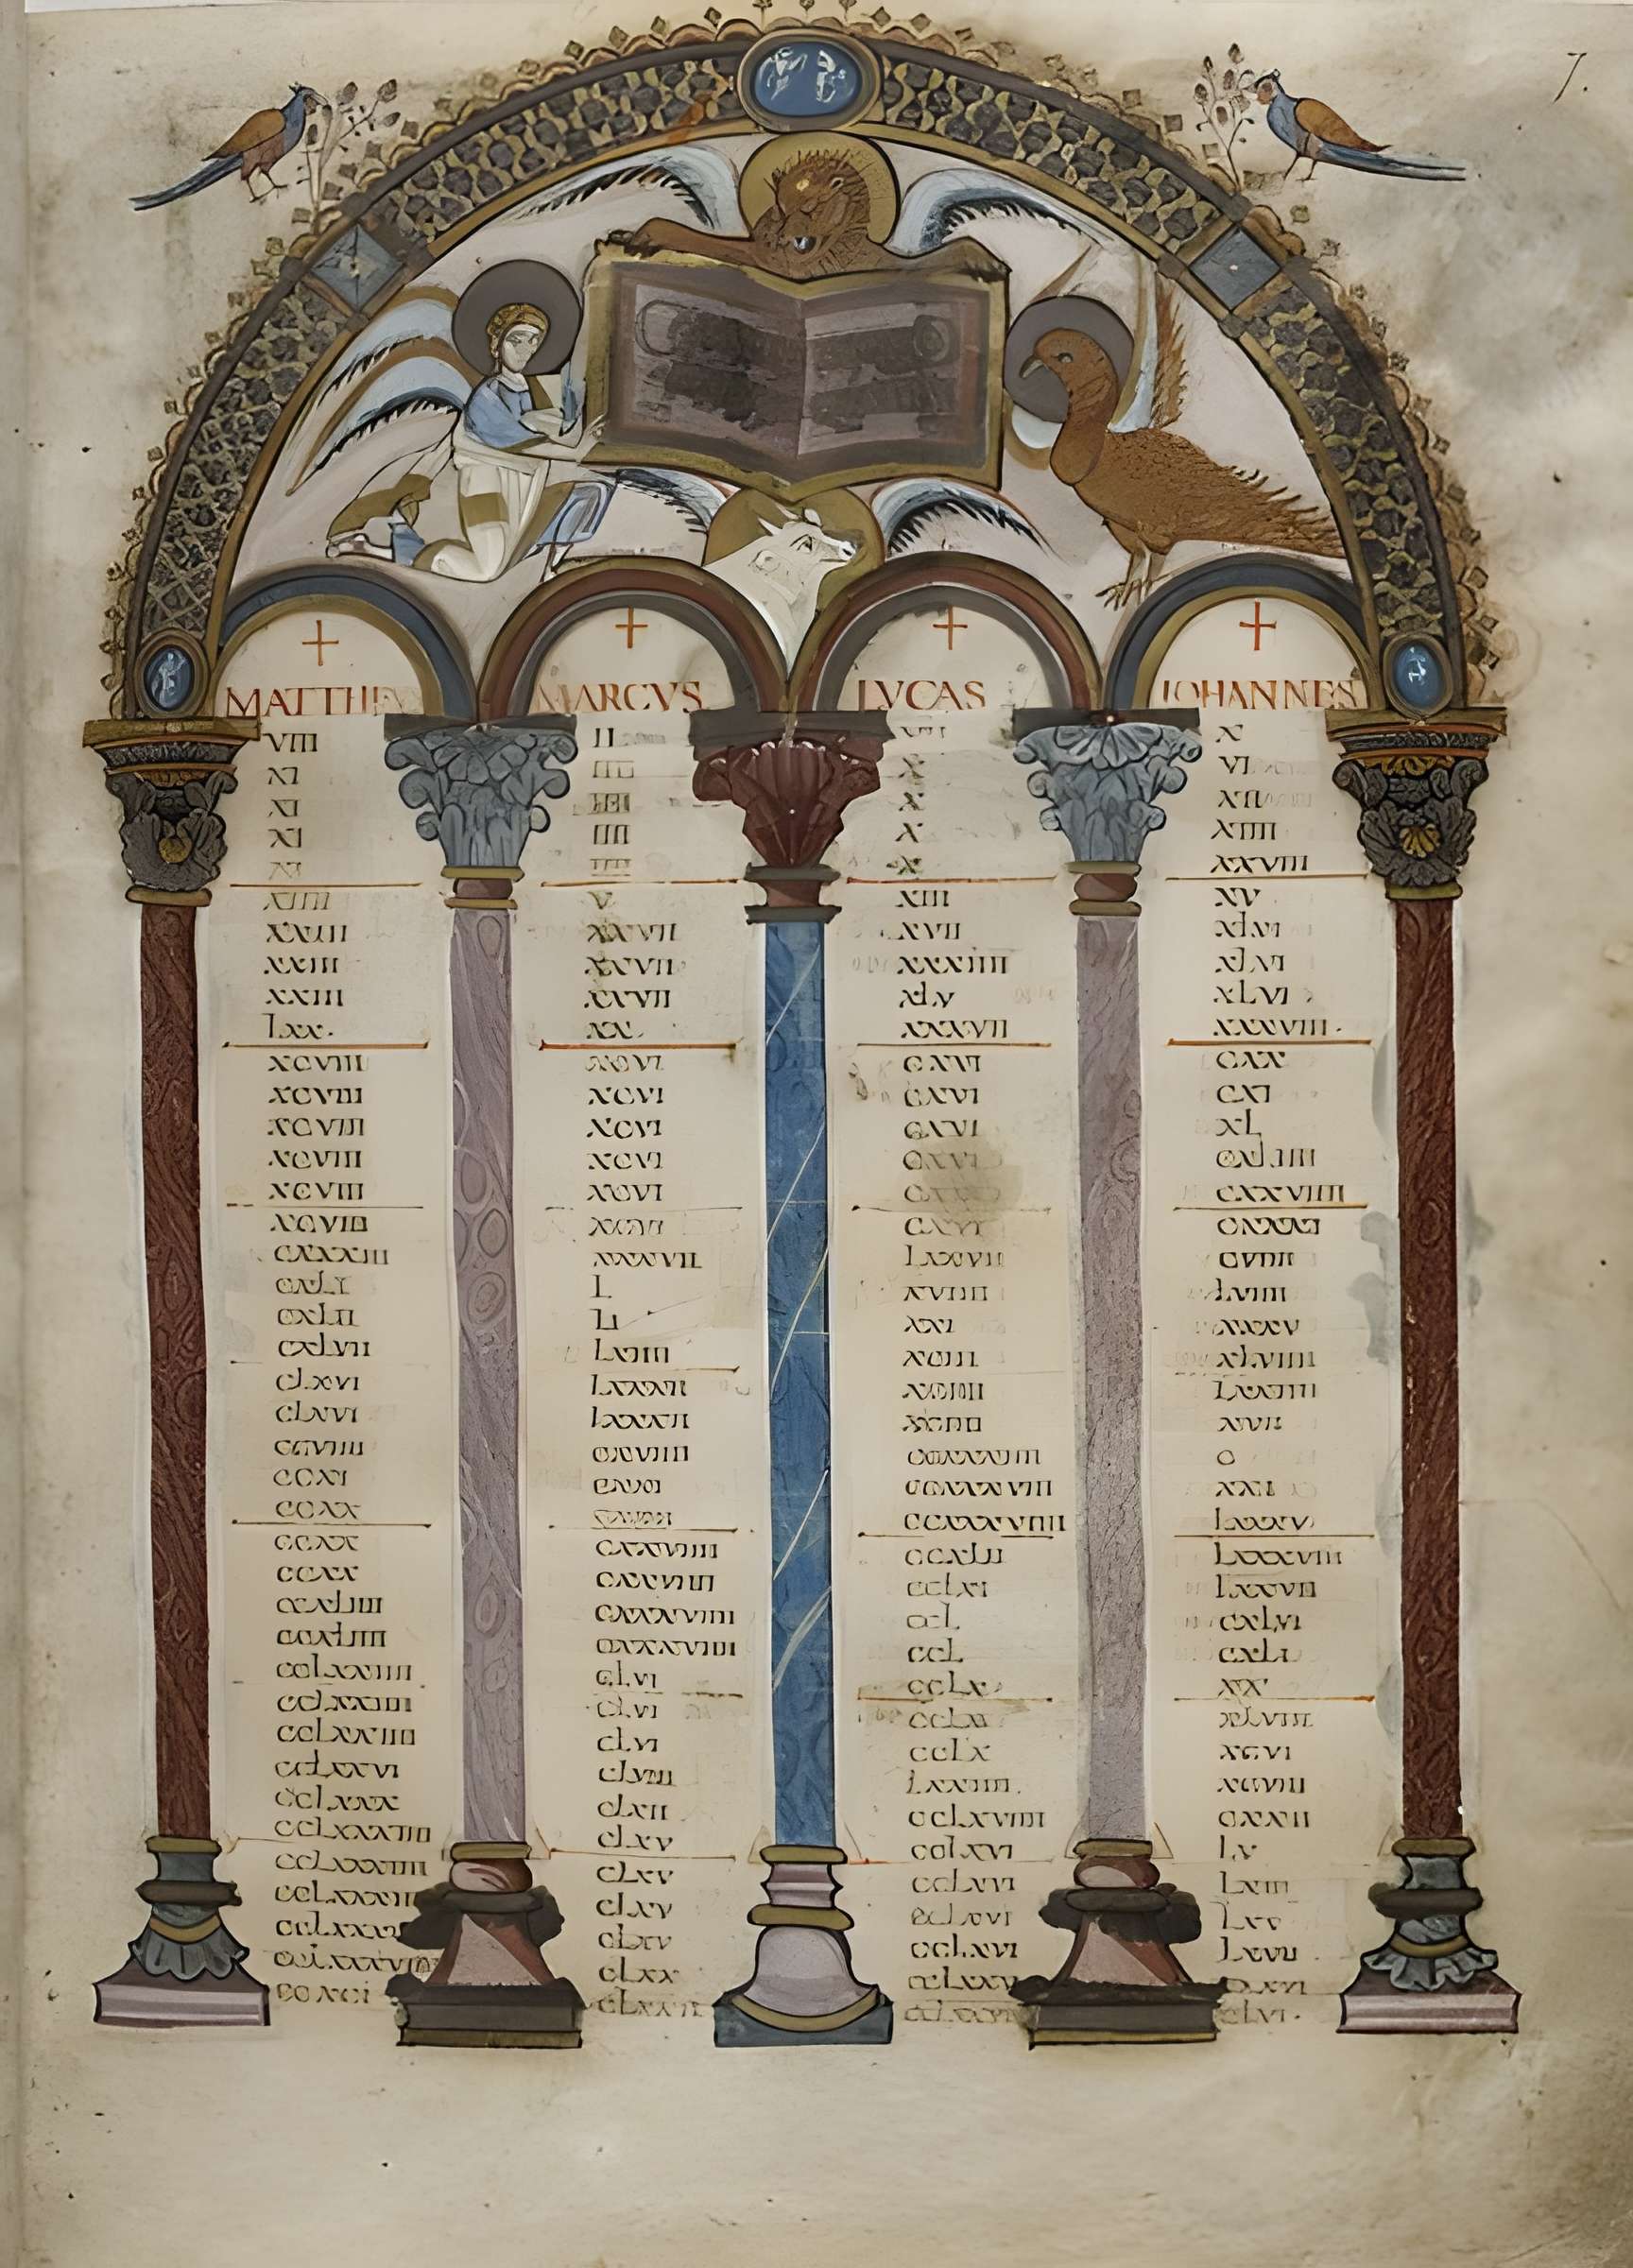 MATTHEVS MARCVS LVCAS IOHANNES
VIII II VII X
XI IIII X VI
XI IIII X XII
XI IIII X XIIII
XI IIII X XXVIII
XIIII V XIII XV
XXIII XXVII XVII XLVI
XXIII XXVII XXXIIII XLVI
XXIII XXVII XLV XLVI
LXX XX XXXVII XXXVIII
XCVIII XCVI CXVI CXX
XCVIII XCVI CXVI CXI
XCVIII XCVI CXVI XL
XCVIII XCVI CXVI CXLIIII
XCVIII XCVI CXXVIIII
XCVIII XCVI CXVI CXXXI
CXXXIII XXXVII LXXVII CVIIII
CXLI L XVIIII LVIIII
CXLII LI XXI XXXV
CXLVII LXIIII XCIII XLVIIII
CLXVI LXXXII XCIIII LXXIIII
CLXVI LXXXII XVII
CCVIIII CXVIIII CCXXXIIII C
CCXI CCXXXVIII XXI
CCXX CCXXXVIIII LXXXV
CCXX CXXVIIII CCXLII LXXXVIII
CCXX CXXVIIII CCLXI LXXVII
CCXLIIII CXXXVIIII CCL CXLVI
CCXLIIII CXXXVIIII CCL CXLI
CCLXXIIII CLVI CCLX XX
CCLXXIIII CLVI CCLX XLVIII
CCLXXIIII CLVI CCLX XCVI
CCLXXVI CLVIII LXXIIII XCVIII
CCLXXX CLXII CCLXVIIII CXXII
CCLXXXIIII CLXV CCLXVI LV
CCLXXXIIII CLXV CCLXVI LXIII
CLXV CCLXVI LXV
CLXV CCLXVI LXVII
CLXX CXXVI
CCXCI CLVI